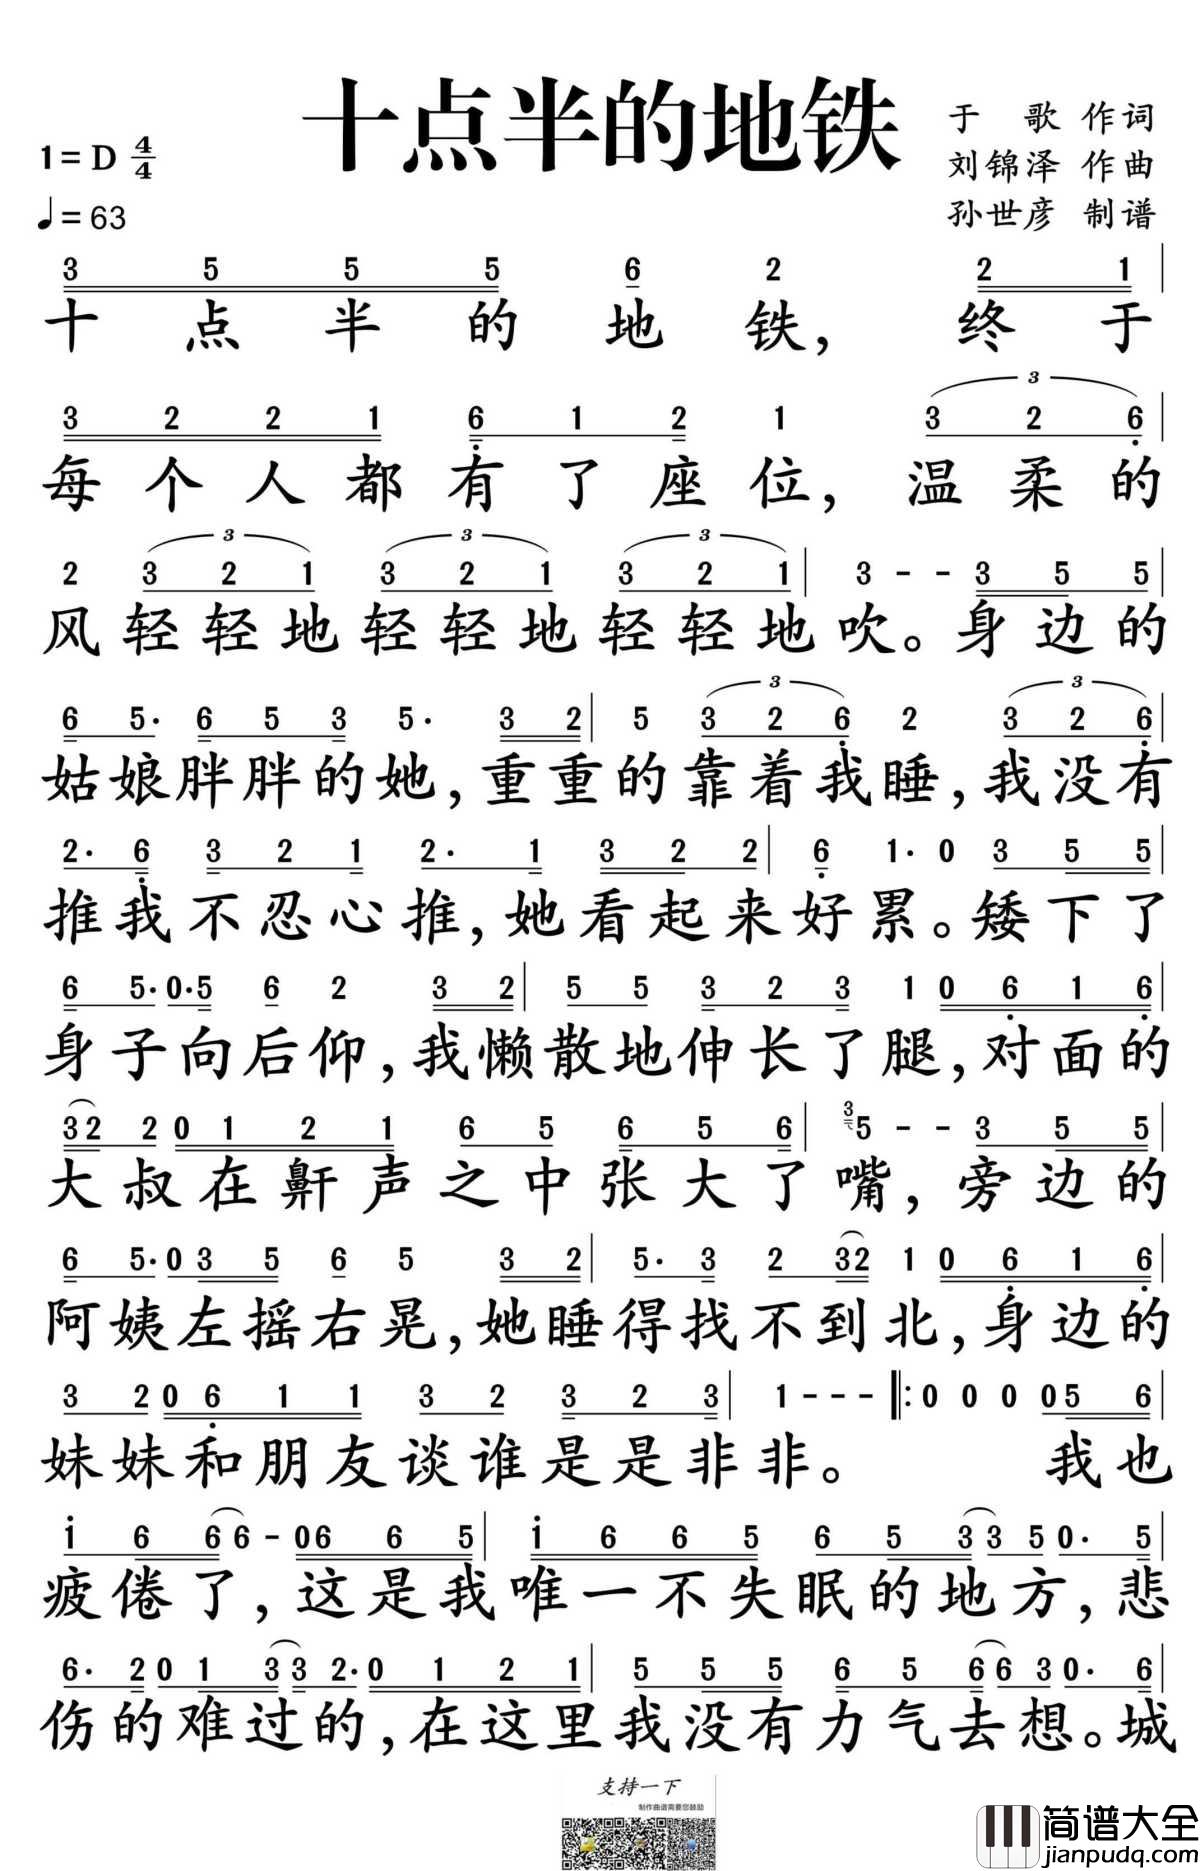 十点半的地铁
1=D 4/4
♩=63
于 歌 作词
刘锦泽 作曲
孙世彦 制谱
3 5 5 5 6 2 2 1 |
十点半的地铁，终于
3
3 2 2 1 6 1 2 1 3 2 6 |
每个人都有了座位，温柔的
3 3 3
2 3 2 1 3 2 1 3 2 1 | 3 - - 3 5 5 |
风轻轻地轻轻地轻轻地吹。身边的
3 3
6 5· 6 5 3 5· 3 2 | 5 3 2 6 2 3 2 6 |
姑娘胖胖的她，重重的靠着我睡，我没有
2· 6 3 2 1 2· 1 3 2 2 | 6 1· 0 3 5 5 |
推我不忍心推，她看起来好累。矮下了
6 5· 0· 5 6 2 3 2 | 5 5 3 2 3 1 0 6 1 6 |
身子向后仰，我懒散地伸长了腿，对面的
3 2 2 0 1 2 1 6 5 6 5 6 | 3 5 - - 3 5 5 |
大叔在鼾声之中张大了嘴，旁边的
6 5· 0 3 5 6 5 3 2 | 5· 3 2 3 2 1 0 6 1 6 |
阿姨左摇右晃，她睡得找不到北，身边的
3 2 0 6 1 1 3 2 3 2 3 | 1 - - - ‖: 0 0 0 0 5 6 |
妹妹和朋友谈谁是是非非。 我也
1 6 6 6 - 0 6 6 5 | 1 6 6 5 6 5 3 3 5 0· 5 |
疲倦了，这是我唯一不失眠的地方，悲
6· 2 0 1 3 3 2· 0 1 2 1 | 5 5 5 6 5 6 6 3 0· 6 |
伤的难过的，在这里我没有力气去想。城
支持一下
制作曲谱需要您鼓励
简谱大全
jianpudq.com